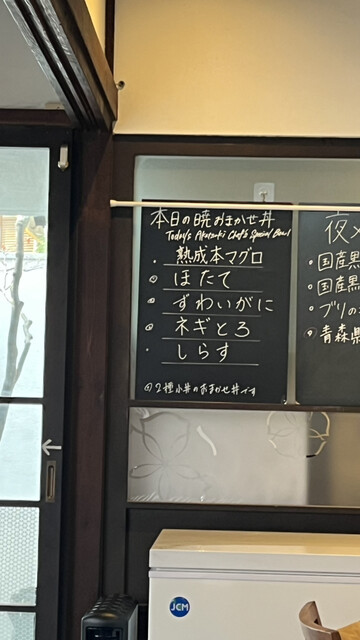 本日の暁おまかせ丼
Today's Akatsuki Chef's Special Bowl
・熟成本マグロ
ほたて
ずわいがに
ネギとろ
・しらす
2種小丼のおまかせ丼です
夜
・国産黒
・国産黒
・ブリの
青森県
JCM